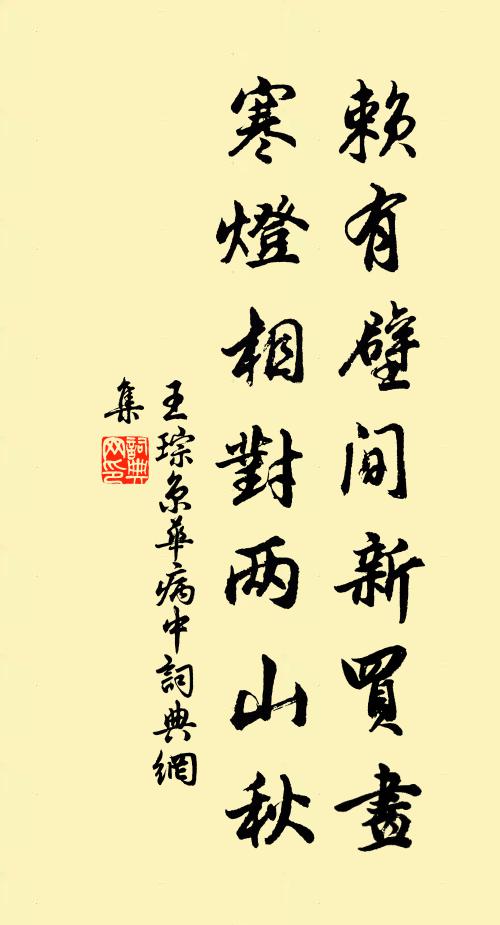 賴有壁間新買畫
寒燈相對两山秋
王琮京華病中詞典網
集
詞典网印